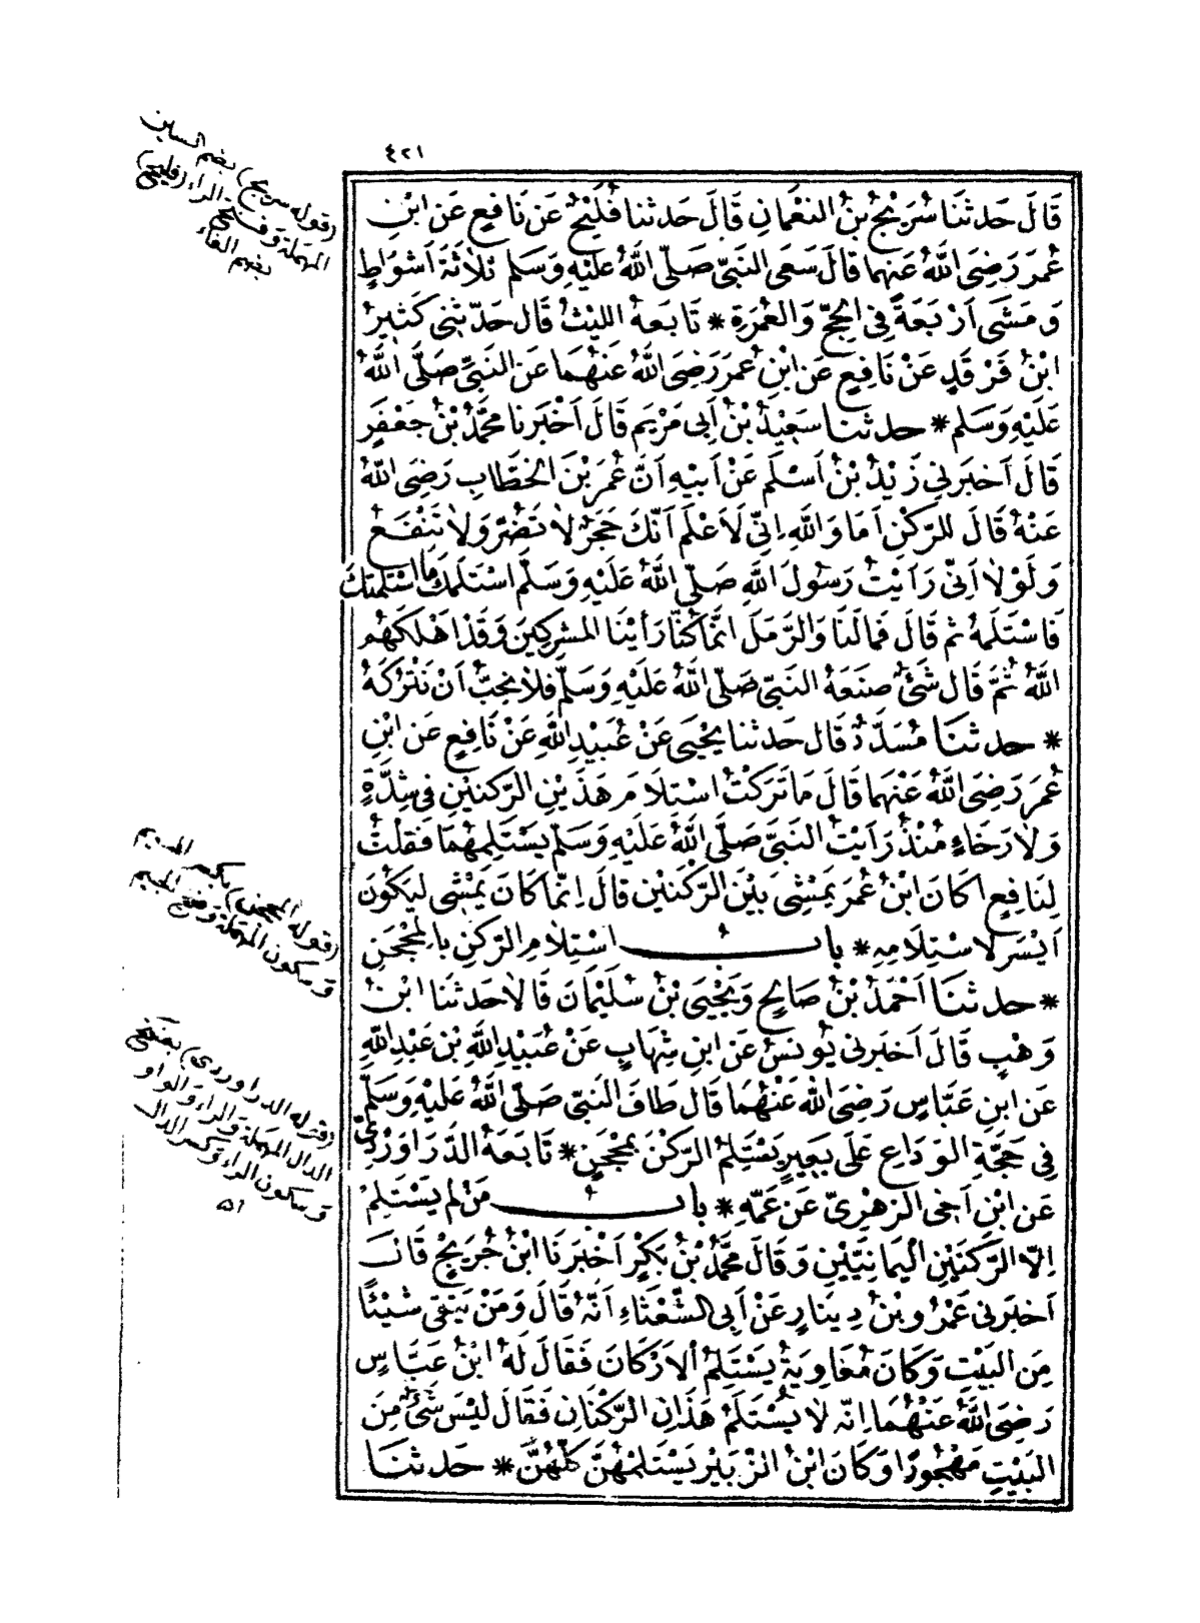 ٤٢١
قَالَ حَدثنَا سُرَيْجُ بنُ النعْمَانِ قَالَ حَدثنا فُلَيْحٌ عَن نَافِعٍ عَن ابْنِ
عُمَرَ رَضِىَ اللّهُ عَنهما قالَ سَعَى النبىّ صَلّى اللّهُ عليْهِ وَسَلم ثلاثَةَ اَشوَاطٍ
وَمَشَى اَرْبَعَةً فِى الحجِّ وَالعُمرَةِ * تَابَعهُ الليْثُ قَال حَدّثنِى كَثِيرُ
ابْنُ فَرْقَدٍ عَنْ نَافِعٍ عَن ابْنِ عُمرَ رَضِىَ اللّهُ عَنْهُمَا عَن النَبىِّ صَلَّى اللّهُ
عَلَيْهِ وَسَلم * حدثنا سَعِيدُ بْنُ اَبى مَرْيَم قَالَ اَخْبَرنا محمَّدُ بْنُ جَعْفَرٍ
قَالَ اَخبَرنِى زَيْدُ بْنُ اَسْلَم عَنْ اَبيْهِ اَنَّ عُمَرَ بْنَ الخَطَّابِ رَضِىَ اللّهُ
عَنْهُ قَالَ للرّكْنِ اَمَا وَاللّهِ اِنِّى لَاَعْلَم اَنّكَ حَجَرٌ لاَ تَضُرّ وَلاَ تَنْفَعُ
وَلَوْلاَ اَنِّى رَاَيْتُ رَسُولَ اللّهِ صَلّى اللّهُ عَلَيْهِ وَسَلّم اسْتَلَمَكَ مَا اسْتَلَمْتكَ
فَاسْتَلَمهُ ثم قَالَ فَمَالَنَا وَالرَّمَلَ انّمَا كُنّا رَأيْنَا المشرِكِينَ وَقَدْ اَهْلَكَهُم
اللّهُ ثُمَّ قَال شَئٌ صنعَهُ النبىّ صَلّى اللّهُ عَلَيْهِ وَسَلّم فلاَ نحِبُّ اَنْ نَتْرُكَهُ
* حدثنَا مُسَدّدٌ قَال حَدثنا يحْيَى عَنْ عُبَيْدِ اللّهِ عَنْ نَافِعٍ عَن ابْنِ
عُمرَ رَضِىَ اللّهُ عَنْهما قَالَ مَا تَرَكْتُ اسْتِلاَمَ هَذَيْنِ الرّكنيْنِ فى شِدَّةٍ
وَلاَ رَخَاءٍ مُنْذُ رَاَيْتُ النَبىَّ صَلَّى اللّهُ عَلَيْهِ وَسَلّم يسْتَلِمهُمَا فَقلْتُ
لِنَافِعٍ اَكَانَ ابْنُ عُمَرَ يَمْشِى بَيْنَ الرّكنَيْن قالَ اِنّما كَانَ يَمْشى ليَكُونَ
اَيْسَر لاسْتِلاَمِهِ * بابُ اسْتِلاَمِ الرّكنِ بالمحْجَنِ
* حدثنَا اَحْمَدُ بْنُ صَالِحٍ وَيَحْيَى بْنُ سُلَيْمَانَ قَالاَ حَدثنَا ابْنُ
وَهْبٍ قَالَ اَخبَرنى يُونسُ عَن ابنِ شِهَابٍ عَنْ عُبَيْدِ اللّهِ بْنِ عَبْدِ اللّهِ
عَن ابنِ عَبَّاسٍ رَضِىَ اللّهُ عَنْهُمَا قَال طَافَ النَبىّ صَلّى اللّهُ عَليْهِ وَسَلّم
فِى حَجّةِ الوَدَاعِ عَلَى بَعِيرٍ يَسْتَلِمُ الرّكْنَ بمحْجَنٍ * تَابَعهُ الدَّرَاوَرْدِىُّ
عَن ابْنِ اَخِى الزهْرِىّ عَن عَمّهِ * بابُ مَنْ لم يَسْتَلِمْ
اِلاّ الرّكنَيْنِ اليَمَانِيَّيْنِ وَقَالَ محمَّدُ بْنُ بَكْرٍ اَخْبَرنَا ابْنُ جُرَيْجٍ قَالَ
اَخبَرنى عَمْرُو بْنُ دِينَارٍ عَنْ اَبِى الشّعْثَاءِ اَنّهُ قَالَ وَمَنْ يَتّقى شَيْئًا
مِنَ البَيْتِ وَكَانَ مُعَاوِيَةُ يَسْتَلِمُ الاَرْكَانَ فَقَالَ لَهُ ابْنُ عَبَّاسٍ
رَضِىَ اللّهُ عَنْهُمَا اِنّه لاَ يُسْتَلَمُ هَذَانِ الرّكْنَانِ فَقَالَ لَيْسَ شَئٌ مِنَ
البَيْتِ مَهْجُورًا وَكَانَ ابْنُ الزبَيْر يَسْتَلمهُنّ كُلّهُنَّ * حَدثنَا
(قوله سريج) بضم السين
المهملة وفتح الراء (فليح)
بضم الفاء
(قوله المحجن) بكسر الميم
وسكون المهملة وفتح الجيم
(قوله الدراوردى) بفتح
الدال المهملة والراء والواو
وسكون الراء وكسر الدال
اه